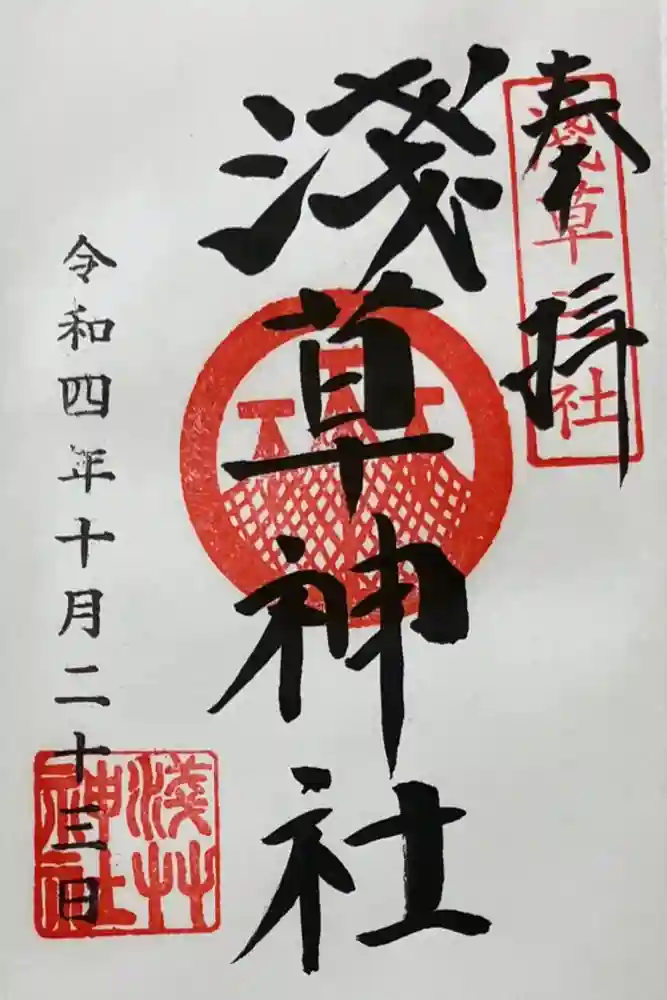 奉拝
淺草三社
淺草神社
令和四年十月二十三日
淺艸神社